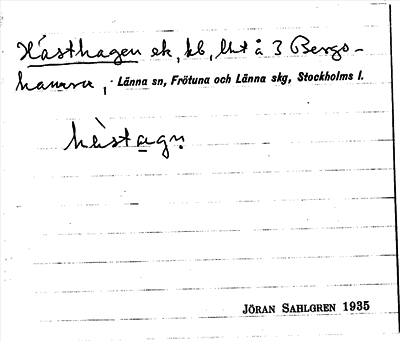 Hästhagen ek, kb, lht å 3 Bergs-
hamra, Länna sn, Frötuna och Länna skg, Stockholms l.
hàstagṇ
JÖRAN SAHLGREN 1935